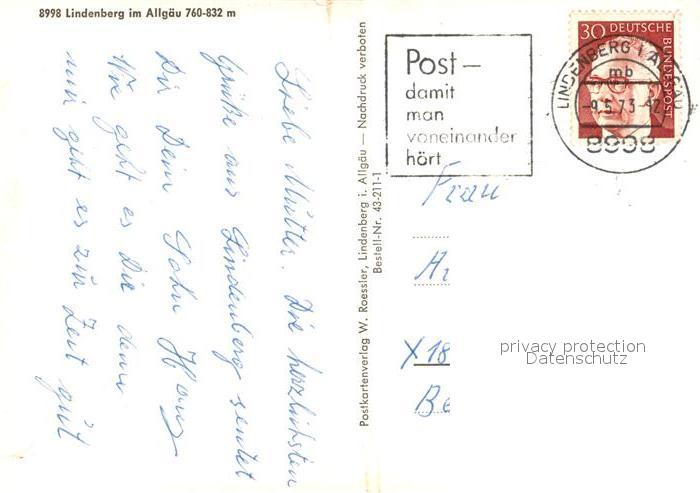 8998 Lindenberg im Allgäu 760-832 m
Liebe Mutter. Die herzlichsten
Grüße aus Lindenberg sendet
Dir Dein Sohn Hans
Wie geht es Dir denn
mir geht es zur Zeit gut
Postkartenverlag W. Roessler, Lindenberg i. Allgäu — Nachdruck verboten
Bestell-Nr. 43-211-1
Post –
damit
man
voneinander
hört
30 DEUTSCHE
BUNDESPOST
LINDENBERG I ALLGÄU
mb
-9.5.73-17
8998
Frau
X 18
Be
privacy protection
Datenschutz